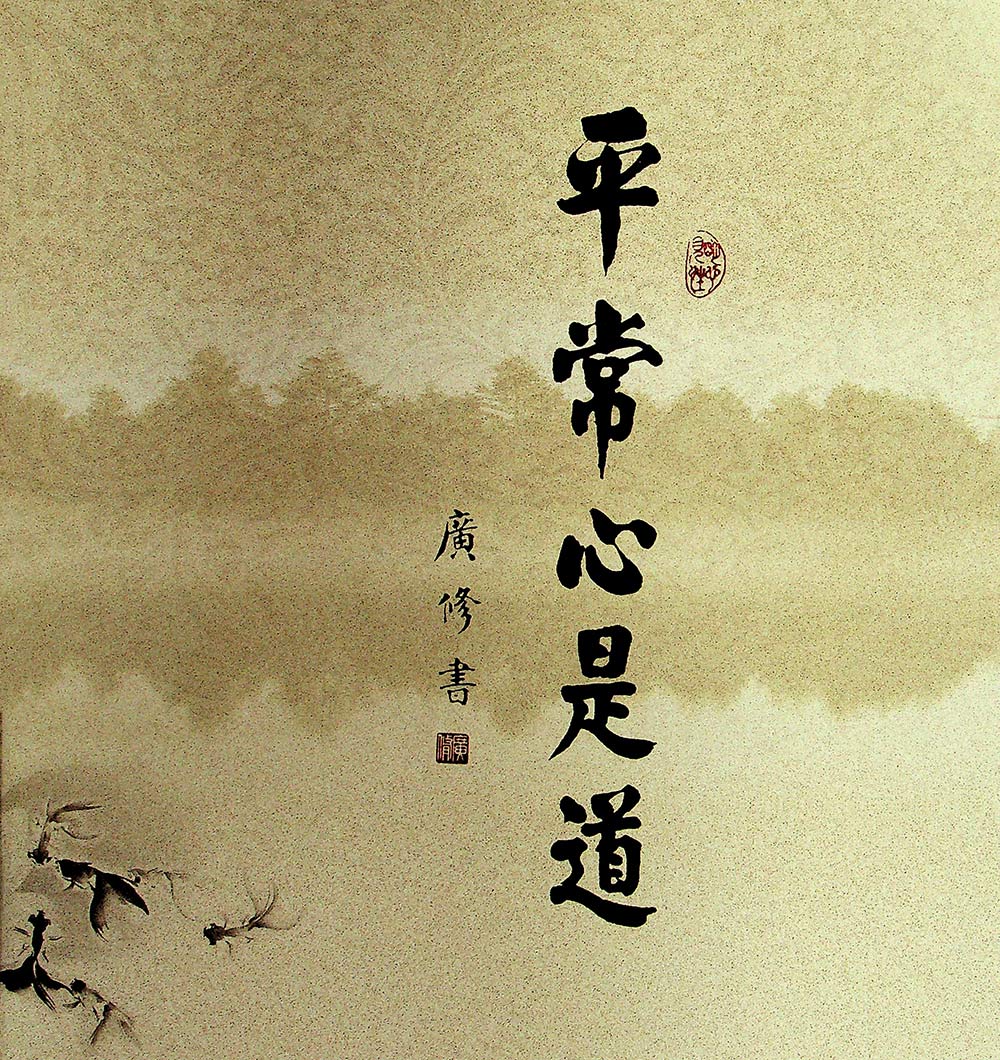 平常心是道
廣修書
廣修